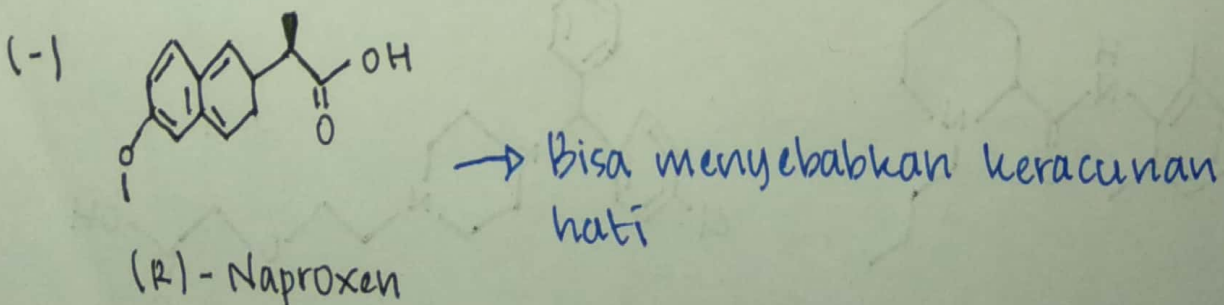 (-)
OH
O
O
→ Bisa menyebabkan keracunan
hati
(R) - Naproxen